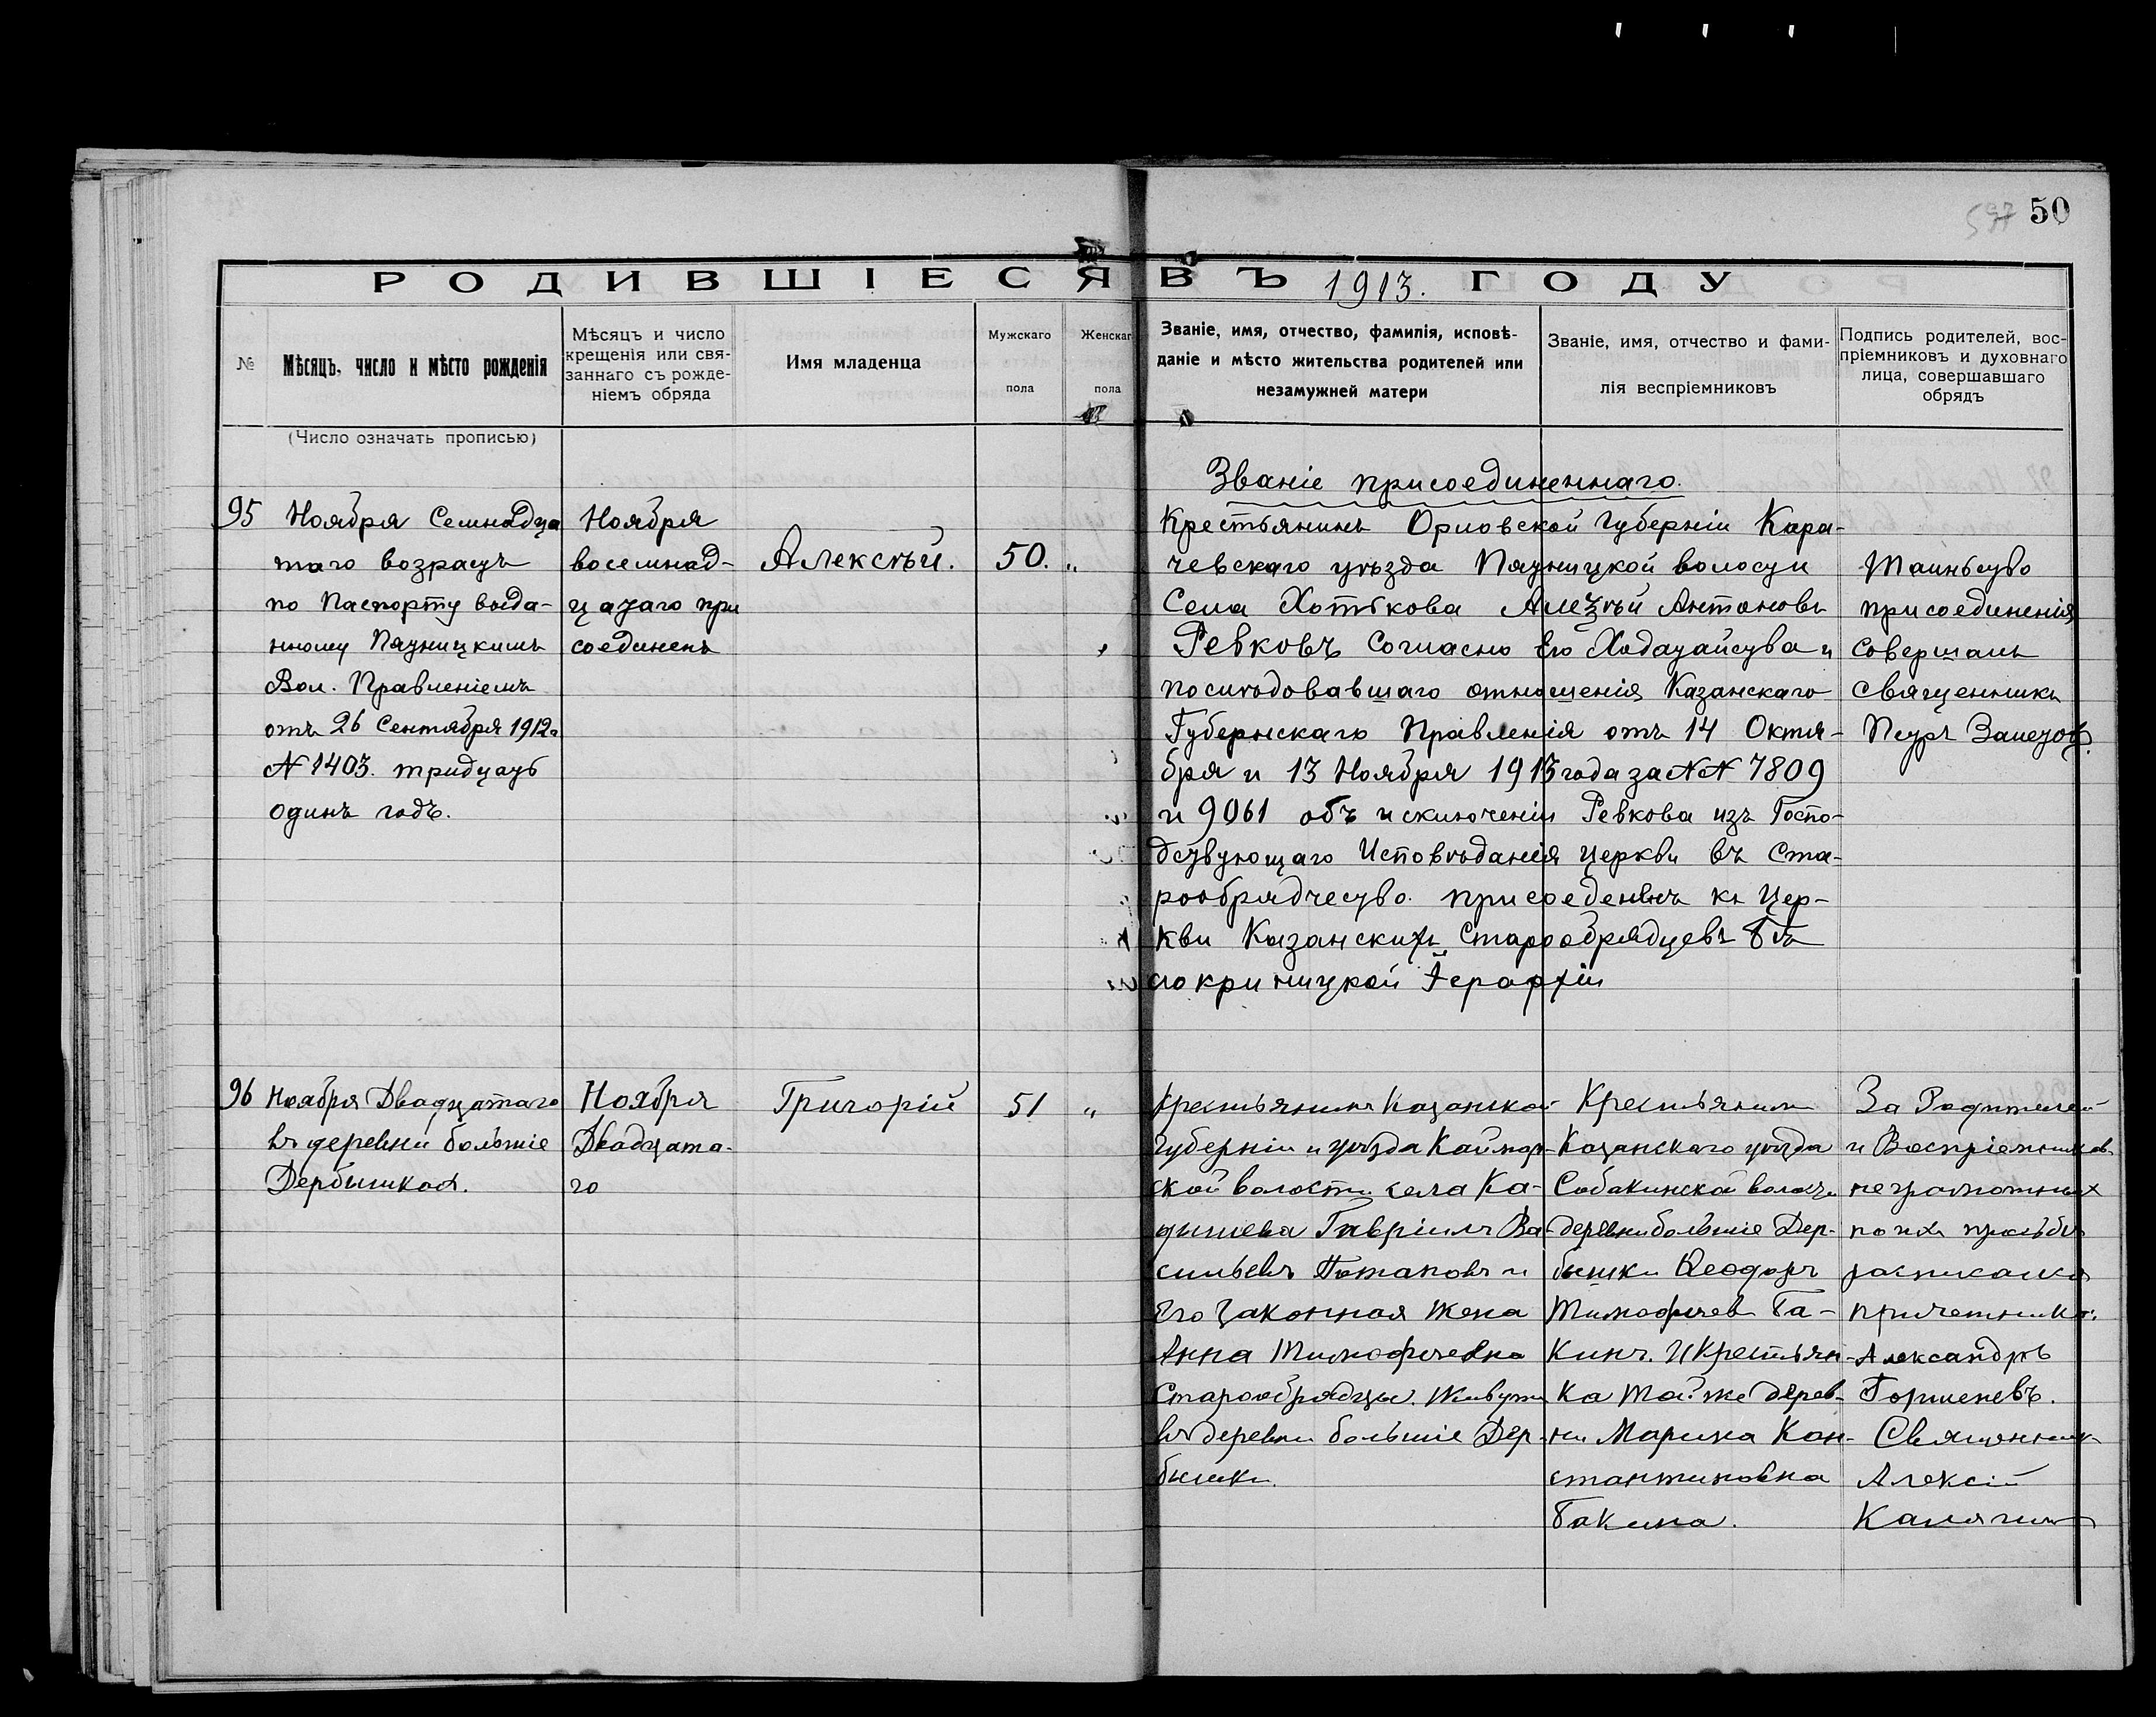 597 50
РОДИВШІЕСЯ ВЪ 1913. ГОДУ
№
Мѣсяцъ, число и мѣсто рожденія
(Число означать прописью)
Мѣсяцъ и число
крещенія или свя-
заннаго съ рожде-
ніемъ обряда
Имя младенца
Мужскаго
пола
Женскаг
пола
Званіе, имя, отчество, фамилія, исповѣ-
даніе и мѣсто жительства родителей или
незамужней матери
Званіе, имя, отчество и фами-
лія веспріемниковъ
Подпись родителей, вос-
пріемниковъ и духовнаго
лица, совершавшаго
обрядъ
95
Ноября Семнадца
таго возрастъ
по Паспорту выда-
нному Пятницкимъ
Вол. Правленіемъ
отъ 26 Сентября 1912г
№ 1403. тридцать
одинъ годъ.
Ноября
восемнад-
цатаго при
соединенъ
Алексѣй.
50.
"
Званіе присоединеннаго.
Крестьянинъ Орловской Губерніи Кара-
чевскаго уѣзда Пятницкой волости
Села Хотькова Алексѣй Антоновъ
Ревковъ Согласно Его Ходатайства и
послѣдовавшаго отношенія Казанскаго
Губернскаго Правленія отъ 14 Октя-
бря и 13 Ноября 1913 года за №№ 7809
и 9061 объ исключеніи Ревкова изъ Госпо-
дствующаго Исповѣданія Церкви въ Ста-
рообрядчество. присоеденёнъ къ Цер-
кви Казанскихъ Старообрядцевъ Бѣ
локриницкой Іерархіи
Таиньство
присоединенія
Совершалъ
Священникъ
Петръ Залетовъ.
96
Ноября Двадцатаго
въ деревни большіе
Дербышках.
Ноября
Двадцата-
го
Григорій
51
"
крестьянинъ Казанской
Губерніи и уѣзда Каймар-
ской волости села Ка-
дышева Гавріилъ Ва-
сильевъ Потаповъ и
Его Законная жена
Анна Тимофеевна
Старообрядцы. Живутъ
въ деревни большіе Дер-
бышки.
Крестьянинъ
Казанскаго уѣзда
Собакинской волости
деревни большіе Дер-
бышки Ѳеодоръ
Тимофеев Ба-
кинъ. И Крестьян-
ка той же дерев-
ни Марина Кон-
стантиновна
Бакина.
За Родителей
и Воспріемников
неграмотных
по их прозьбѣ
расписался
причетникъ:
Александръ
Горшеневъ.
Священник
Алексій
Калягин